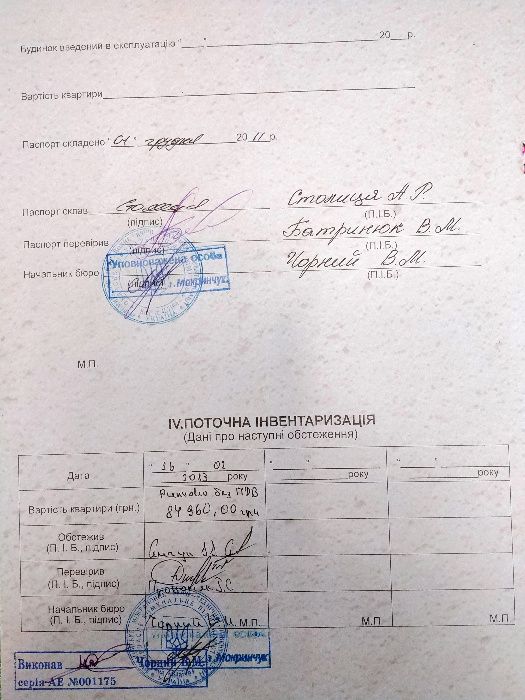 Будинок введений в експлуатацію "___" ___ 20___ р.
Вартість квартири
Паспорт складено "01" грудня 2011 р.
Паспорт склав Столиця А.Р.
(підпис) (П.І.Б.)
Паспорт перевірив Батринюк В.М.
(підпис) (П.І.Б.)
Начальник бюро Чорний В.М.
(підпис) (П.І.Б.)
Уповноважена особа
г. Мокринчук
М.П.
IV.ПОТОЧНА ІНВЕНТАРИЗАЦІЯ
(Дані про наступні обстеження)
Дата "16" 01 2013 року " " року " " року
Вартість квартири (грн.) без ПДВ 84960,00 грн
Обстежив
(П. І. Б., підпис)
Перевірив
(П. І. Б., підпис)
Начальник бюро
(П. І. Б., підпис) Чорний В.М. М.П. М.П. М.П.
Виконав Чорний В.М. г. Мокринчук
серія-АЕ №001175